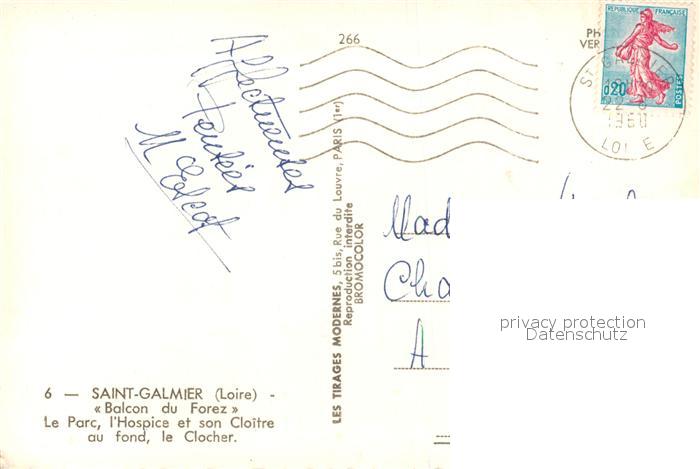 266
PH
VER
REPUBLIQUE FRANÇAISE
0,20
POSTES
ST GALMIER
22-8
1960
LOIRE
Affectueuses
Pensées
M
LES TIRAGES MODERNES, 5 bis, Rue du Louvre, PARIS (1er)
Reproduction interdite
BROMOCOLOR
Mad
Cha
A
privacy protection
Datenschutz
6 — SAINT-GALMIER (Loire) -
« Balcon du Forez »
Le Parc, l'Hospice et son Cloître
au fond, le Clocher.